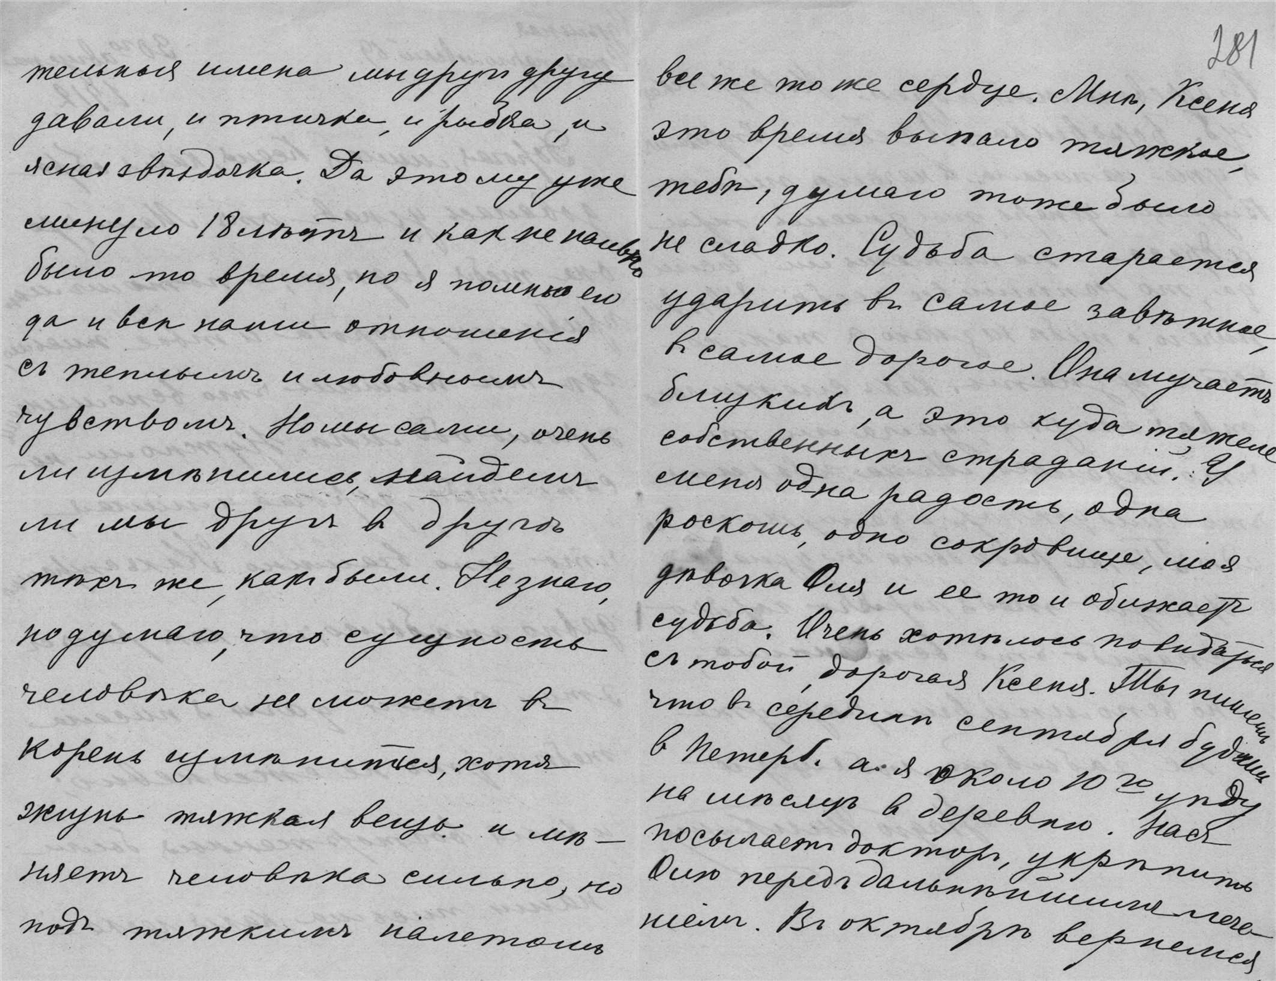 тельныя имена мы другъ другу
давали, и птичка, и рыбка, и
ясная звѣздочка. Да этому уже
минуло 18 лѣтъ и какъ не наивно
было то время, но я помню его
да и всѣ наши отношенія
съ теплымъ и любовнымъ
чувствомъ. Но мы сами, очень
ли измѣнились, найдемъ
ли мы другъ в другѣ
тѣхъ же, какъ были. Не знаю,
но думаю, что сущность
человѣка не можетъ в
корень измѣниться, хотя
жизнь тяжкая вещь и мѣ-
няетъ человѣка сильно, но
подъ тяжкимъ налетомъ
281
все же то же сердце. Мнѣ, Ксеня
это время выпало тяжкое,
тебѣ, думаю тоже было
не сладко. Судьба старается
ударить въ самое завѣтное,
в самое дорогое. Она мучаетъ
близкихъ, а это куда тяжеле
собственныхъ страданій. У
меня одна радость, одна
роскошь, одно сокровище, моя
дѣвочка Оля и ее то и обижаетъ
судьба. Очень хотѣлось повидаться
съ тобой, дорогая Ксеня. Ты пишешь
что въ серединѣ сентября будешь
в Петерб. а я около 10го уѣду
на мѣсяцъ в деревню. Насъ
посылаетъ докторъ, укрѣпить
Олю передъ дальнѣйшимъ лече-
ніемъ. Въ октябрѣ вернемся